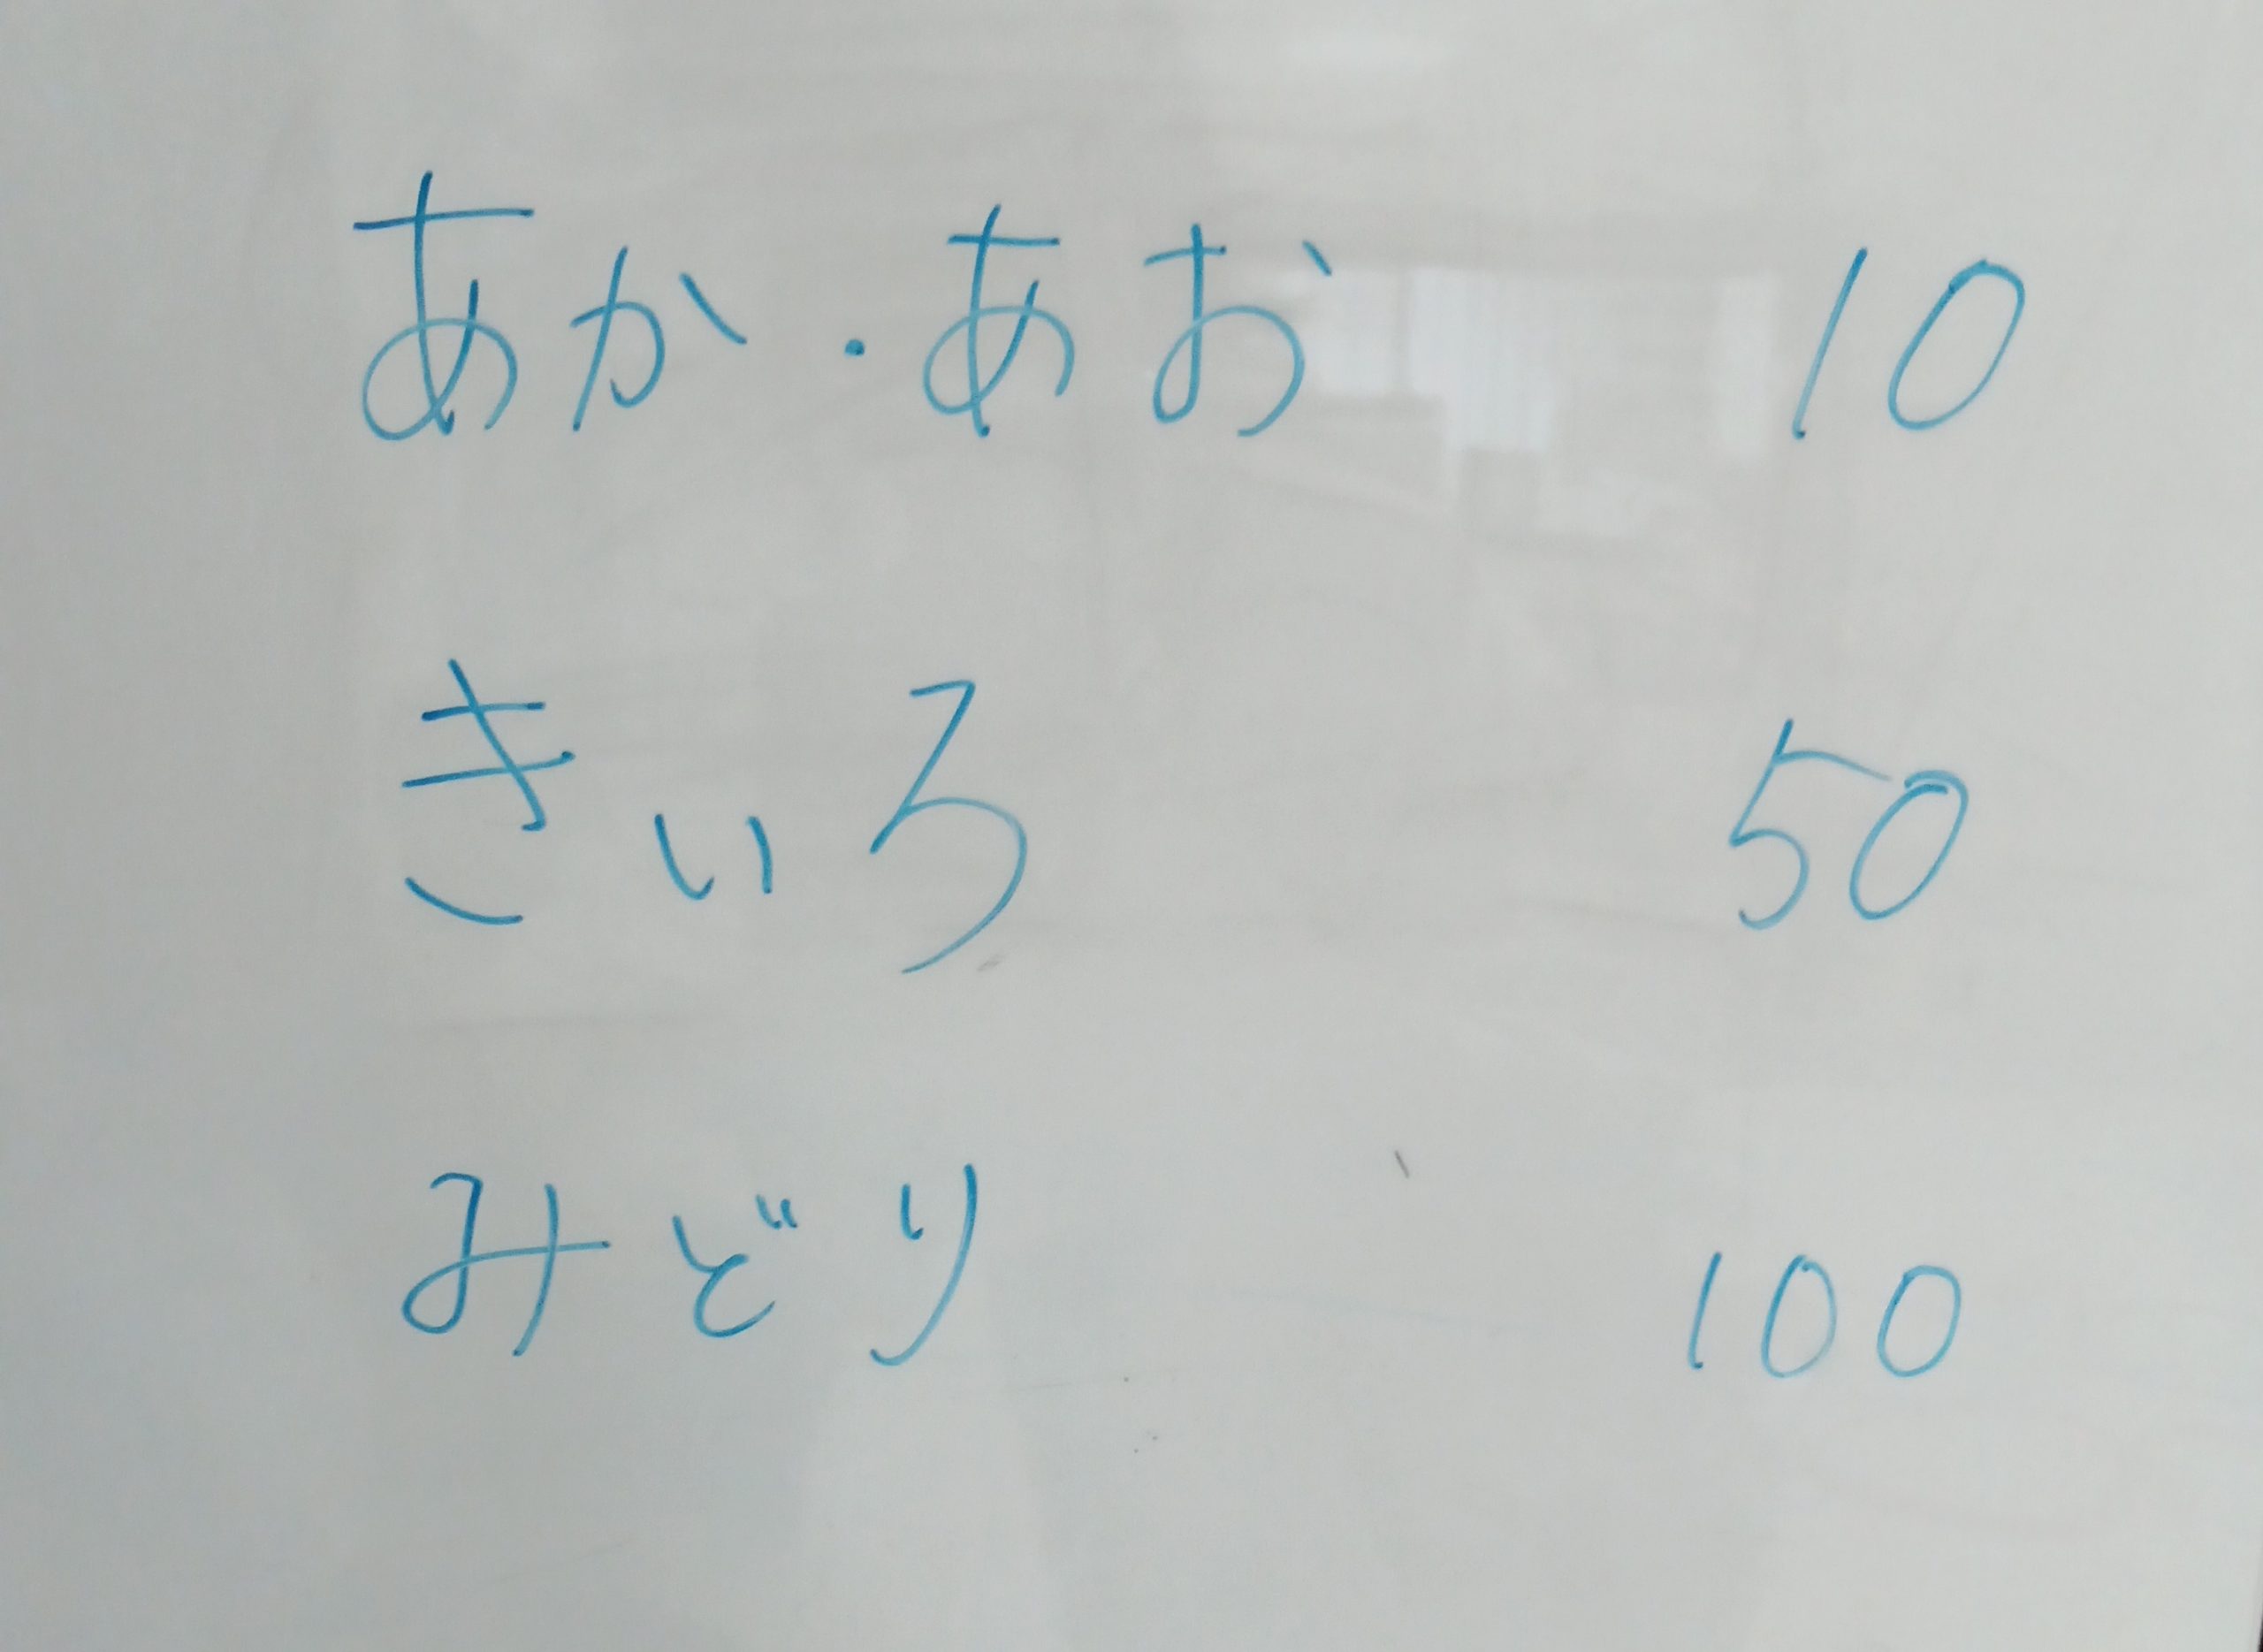 あか・あお 10
きいろ 50
みどり 100